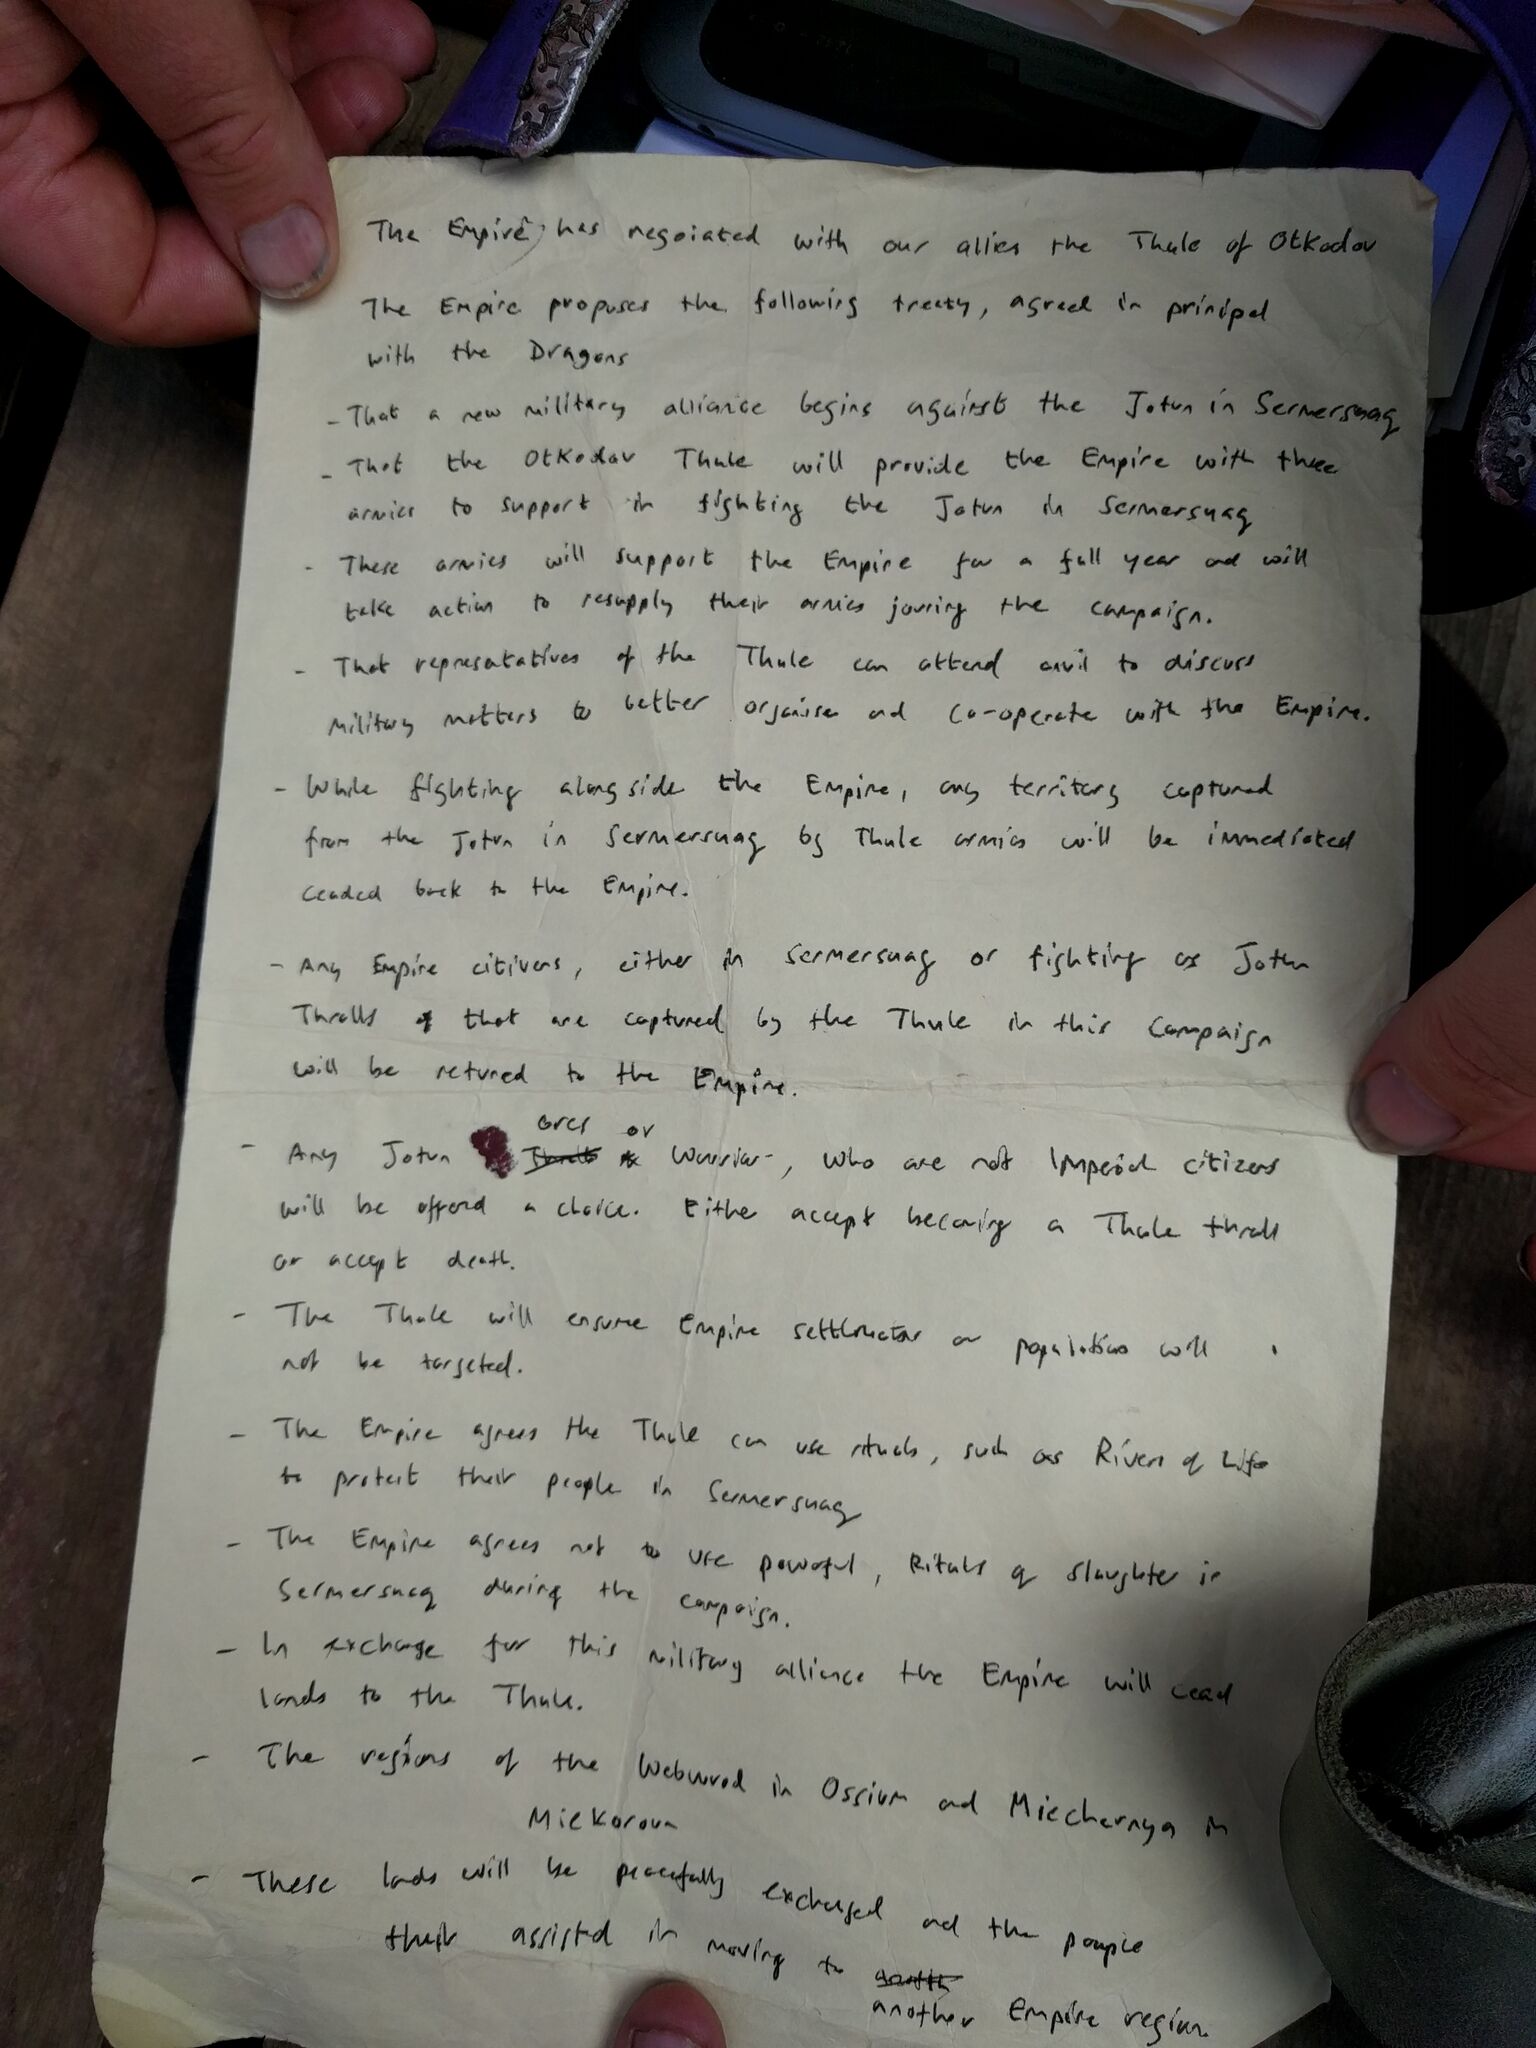 The Empire has negoiated with our allies the Thule of Otkodov
The Empire proposes the following treaty, agreed in prinipal
with the Dragons
- That a new military alliance begins against the Jotun in Sermersuaq
- That the Otkodov Thule will provide the Empire with three
armies to support in fighting the Jotun in Sermersuaq
- These armies will support the Empire for a full year and will
take action to resupply their armies jouring the campaign.
- That represatatives of the Thule can attend anvil to discuss
military matters to better organise and co-operate with the Empire.
- While fighting alongside the Empire, any territory captured
from the Jotun in Sermersuaq by Thule armies will be immediated
ceaded back to the Empire.
- Any Empire citivens, either in Sermersuaq or fighting as Jotun
Thralls that are captured by the Thule in this Campaign
will be retured to the Empire.
orcs or
- Any Jotun Warrior, who are not Imperial citizens
will be offered a choice. Either accept becoming a Thule thrall
or accept death.
- The Thule will ensure Empire or populations will
not be targeted.
- The Empire agrees the Thule can use rituals, such as Rivers of Life
to protect their people in Sermersuaq
- The Empire agrees not to use powerful, Rituals of slaughter in
Sermersuaq during the campaign.
- In exchange for this military alliance the Empire will cead
lands to the Thule.
- The regions of the Webwood in Ossium and Miechernya in
Miekorova
- These lands will be peacefully exchanged and the people
their assisted in moving to
another Empire region.